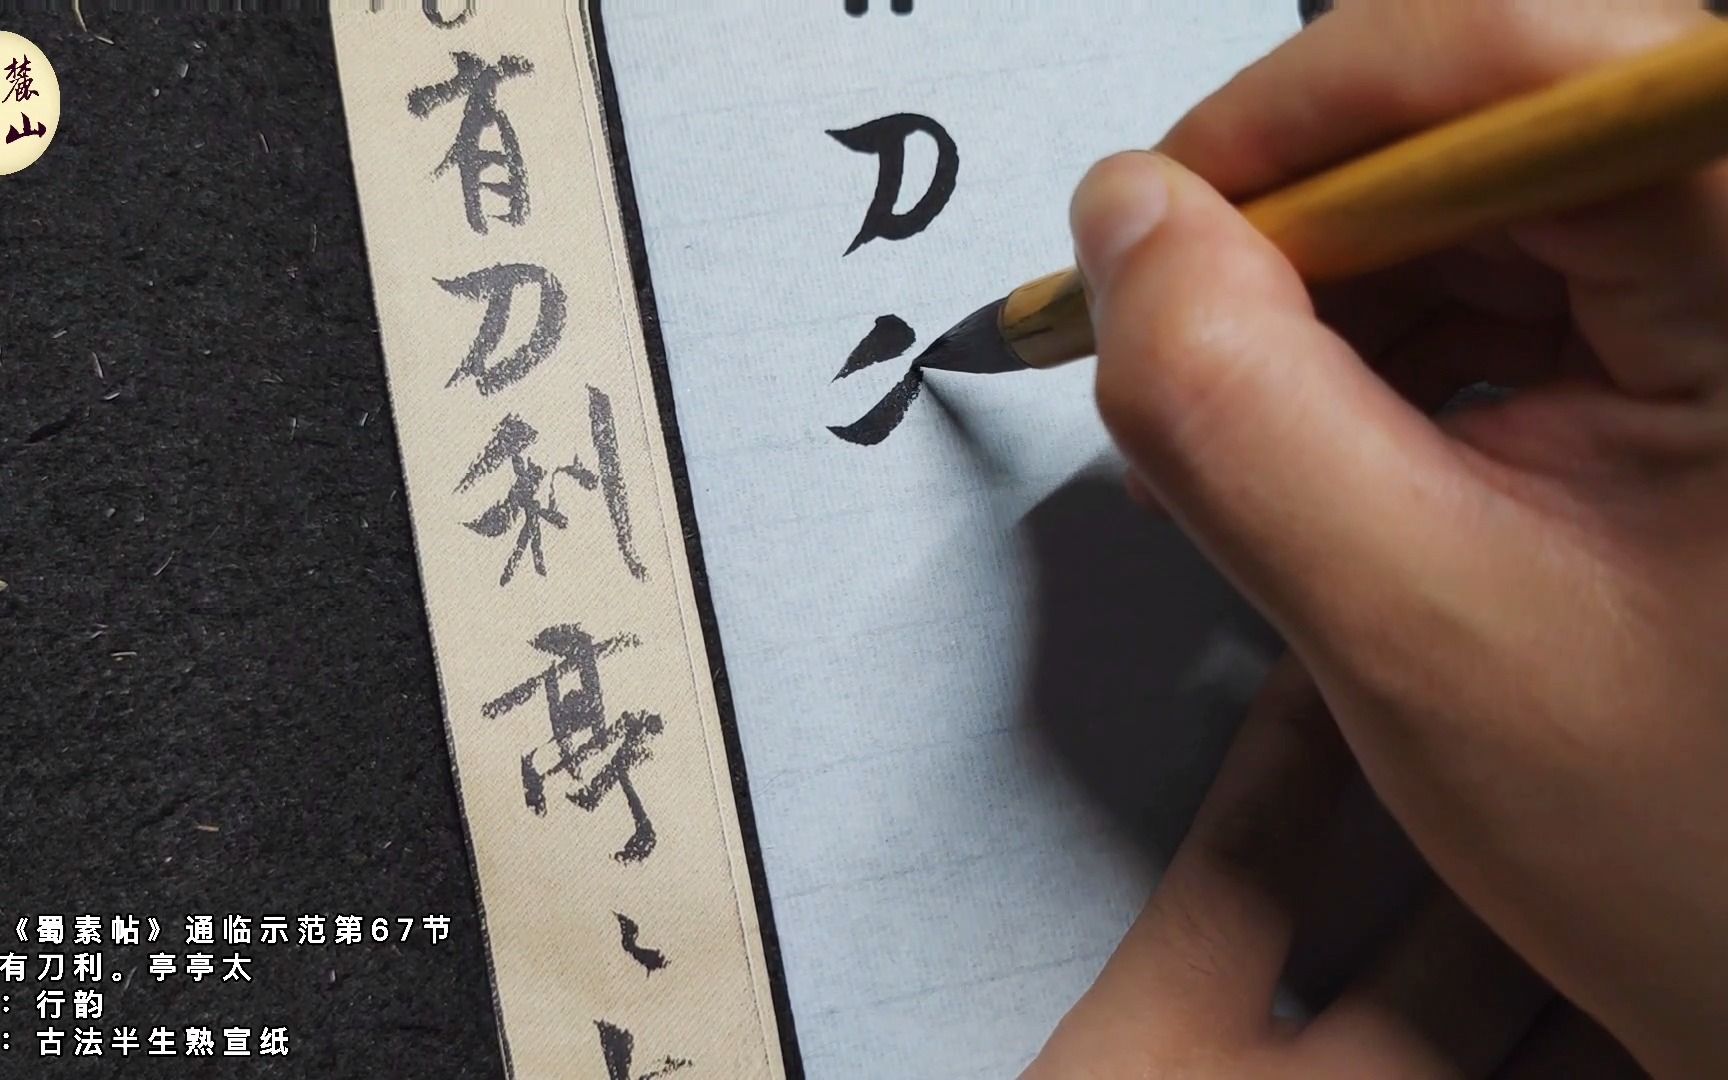 麓
山
有
刀
利
亭
刀
《蜀素帖》通临示范第67节
有刀利。亭亭太
：行韵
：古法半生熟宣纸